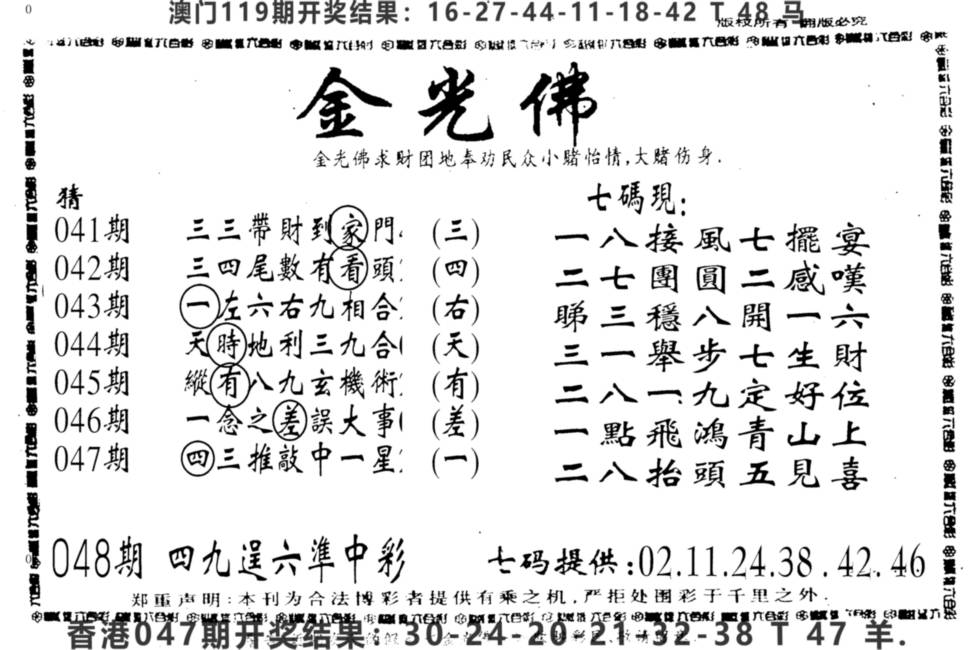 澳门119期开奖结果：16-27-44-11-18-42 T 48 马
版权所有 翻版必究
金光佛
金光佛求财团地奉劝民众小赌怡情,大赌伤身.
猜
041期 三三帶財到家門 (三)
042期 三四尾數有看頭 (四)
043期 一左六右九相合 (右)
044期 天時地利三九合 (天)
045期 縱有八九玄機術 (有)
046期 一念之差誤大事 (差)
047期 四三推敲中一星 (一)
七碼現:
一八接風七擺宴
二七團圓二感嘆
睇三穩八開一六
三一舉步七生財
二八一九定好位
一點飛鴻青山上
二八抬頭五見喜
048期 四九逞六準中彩 七码提供:02.11.24.38.42.46
郑重声明:本刊为合法博彩者提供有乘之机,严拒处圈彩于千里之外.
香港047期开奖结果：30-24-20-21-32-38 T 47 羊.